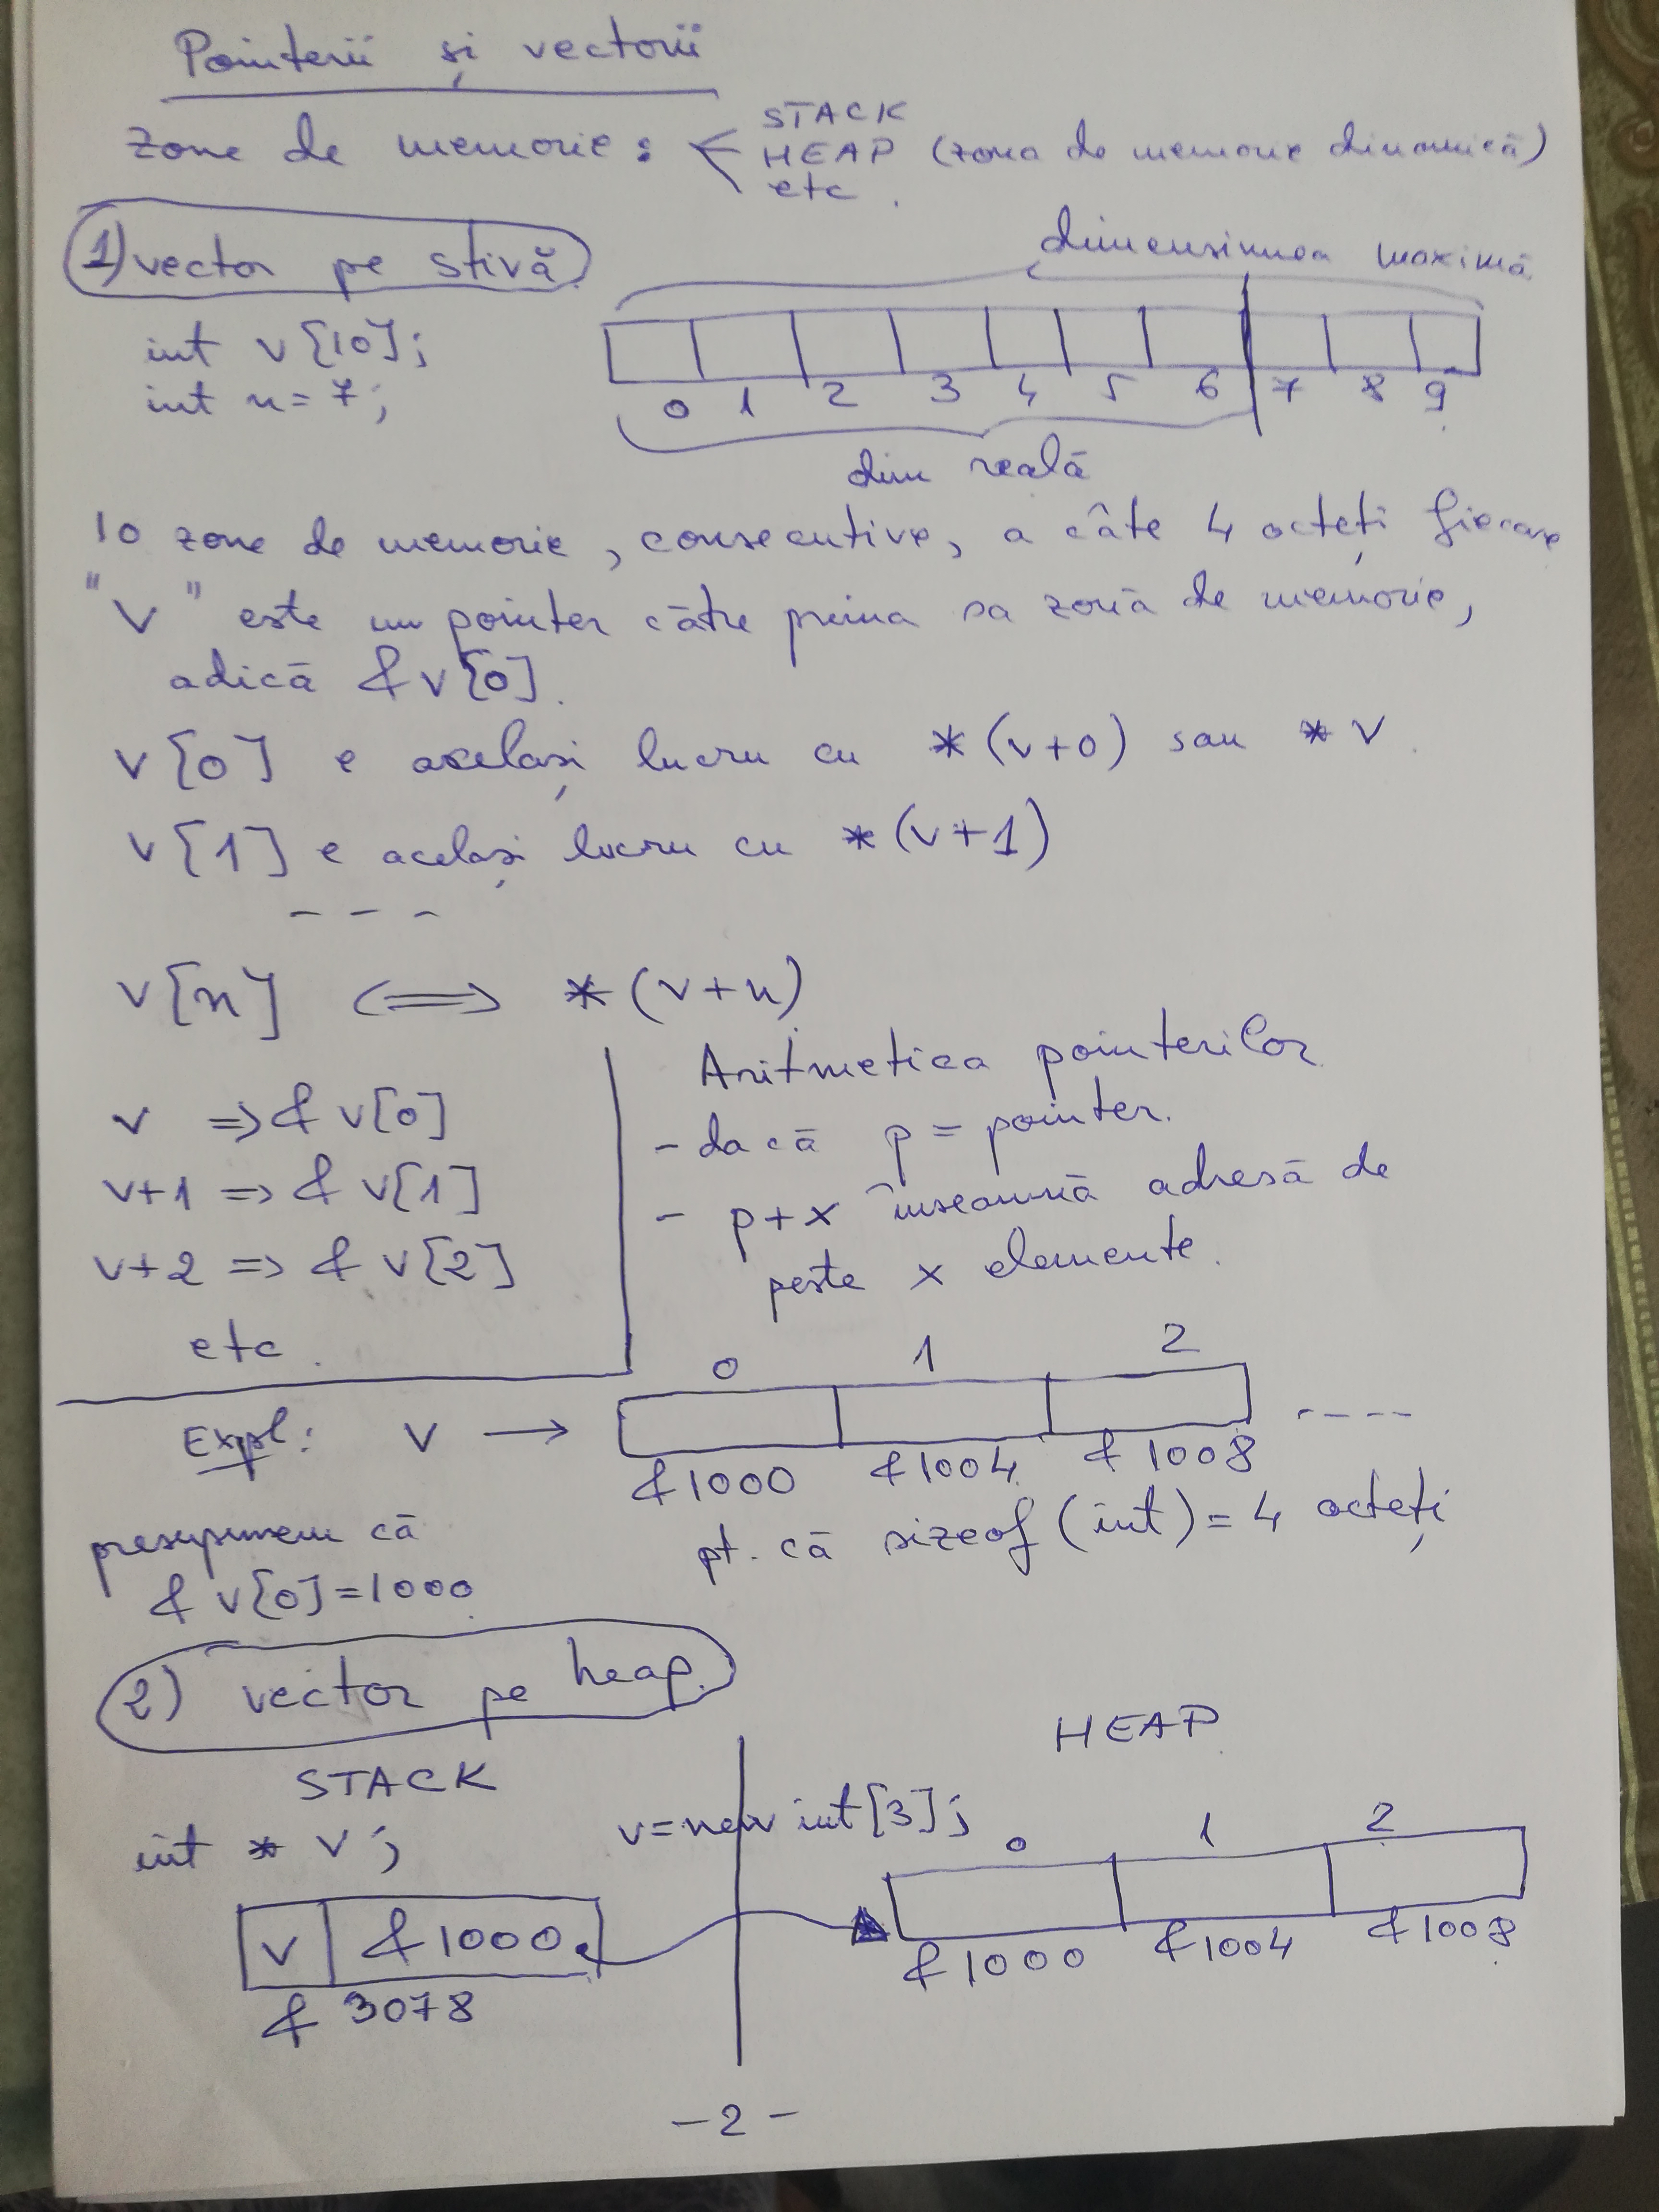 Pointerii și vectorii
zone de memorie :
STACK
HEAP (zona de memorie dinamică)
etc.
1) vector pe stivă
dimensiunea maximă
int v[10];
int n = 7;
0 1 2 3 4 5 6 7 8 9
dim reală
10 zone de memorie, consecutive, a câte 4 octeți fiecare
"v" este un pointer către prima sa zonă de memorie,
adică &v[0].
v[0] e același lucru cu *(v+0) sau *v.
v[1] e același lucru cu *(v+1)
- - -
v[n] <=> *(v+n)
v => & v[0]
v+1 => & v[1]
v+2 => & v[2]
etc.
Aritmetica pointerilor
- dacă p = pointer.
- p+x înseamnă adresă de
peste x elemente.
Expl: v →
0 1 2
&1000 &1004 &1008 ----
presupunem că
& v[0]=1000
pt. că sizeof(int)=4 octeți
2) vector pe heap.
STACK
HEAP
int * v;
v=new int[3];
0 1 2
v &1000
& 3078
&1000 &1004 &1008
-2-